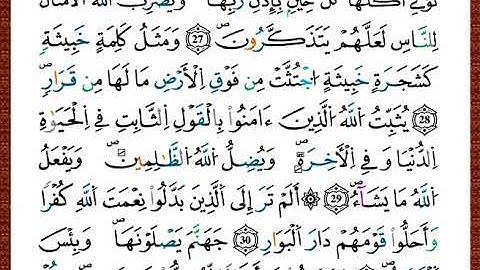 تُوتِےٓ أُكْلَهَا كُلَّ حِينِۢ بِإِذْنِ رَبِّهَاۖ وَيَضْرِبُ اُ۬للَّهُ اُ۬لْأَمْثَالَ
لِلنَّاسِ لَعَلَّهُمْ يَتَذَكَّرُونَۖ 27 وَمَثَلُ كَلِمَةٍ خَبِيثَةٍ
كَشَجَرَةٍ خَبِيثَةٍ اِ۟جْتُثَّتْ مِن فَوْقِ اِ۬لْأَرْضِ مَا لَهَا مِن قَرَارٍۖ
28 يُثَبِّتُ اُ۬للَّهُ اُ۬لذِينَ ءَامَنُواْ بِالْقَوْلِ اِ۬لثَّابِتِ فِے اِ۬لْحَيَوٰةِ
اِ۬لدُّنْيَا وَفِے اِ۬لْأٓخِرَةِۖ وَيُضِلُّ اُ۬للَّهُ اُ۬لظَّٰلِمِينَۖ وَيَفْعَلُ
اُ۬للَّهُ مَا يَشَآءُۖ 29 ۞ أَلَمْ تَرَ إِلَى اَ۬لذِينَ بَدَّلُواْ نِعْمَتَ اَ۬للَّهِ كُفْراٗ
وَأَحَلُّواْ قَوْمَهُمْ دَارَ اَ۬لْبَوَارِ 30 جَهَنَّمَ يَصْلَوْنَهَاۖ وَبِئْسَ